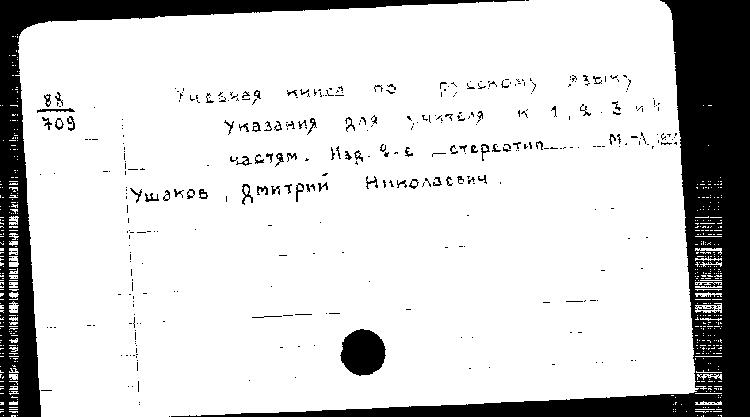 88
709
Учебная книга по русскому языку
Указания для учителя к 1, 2. 3 и 4
частям. Изд. 2-е стереотип М.-Л,
Ушаков, Дмитрий Николаевич.